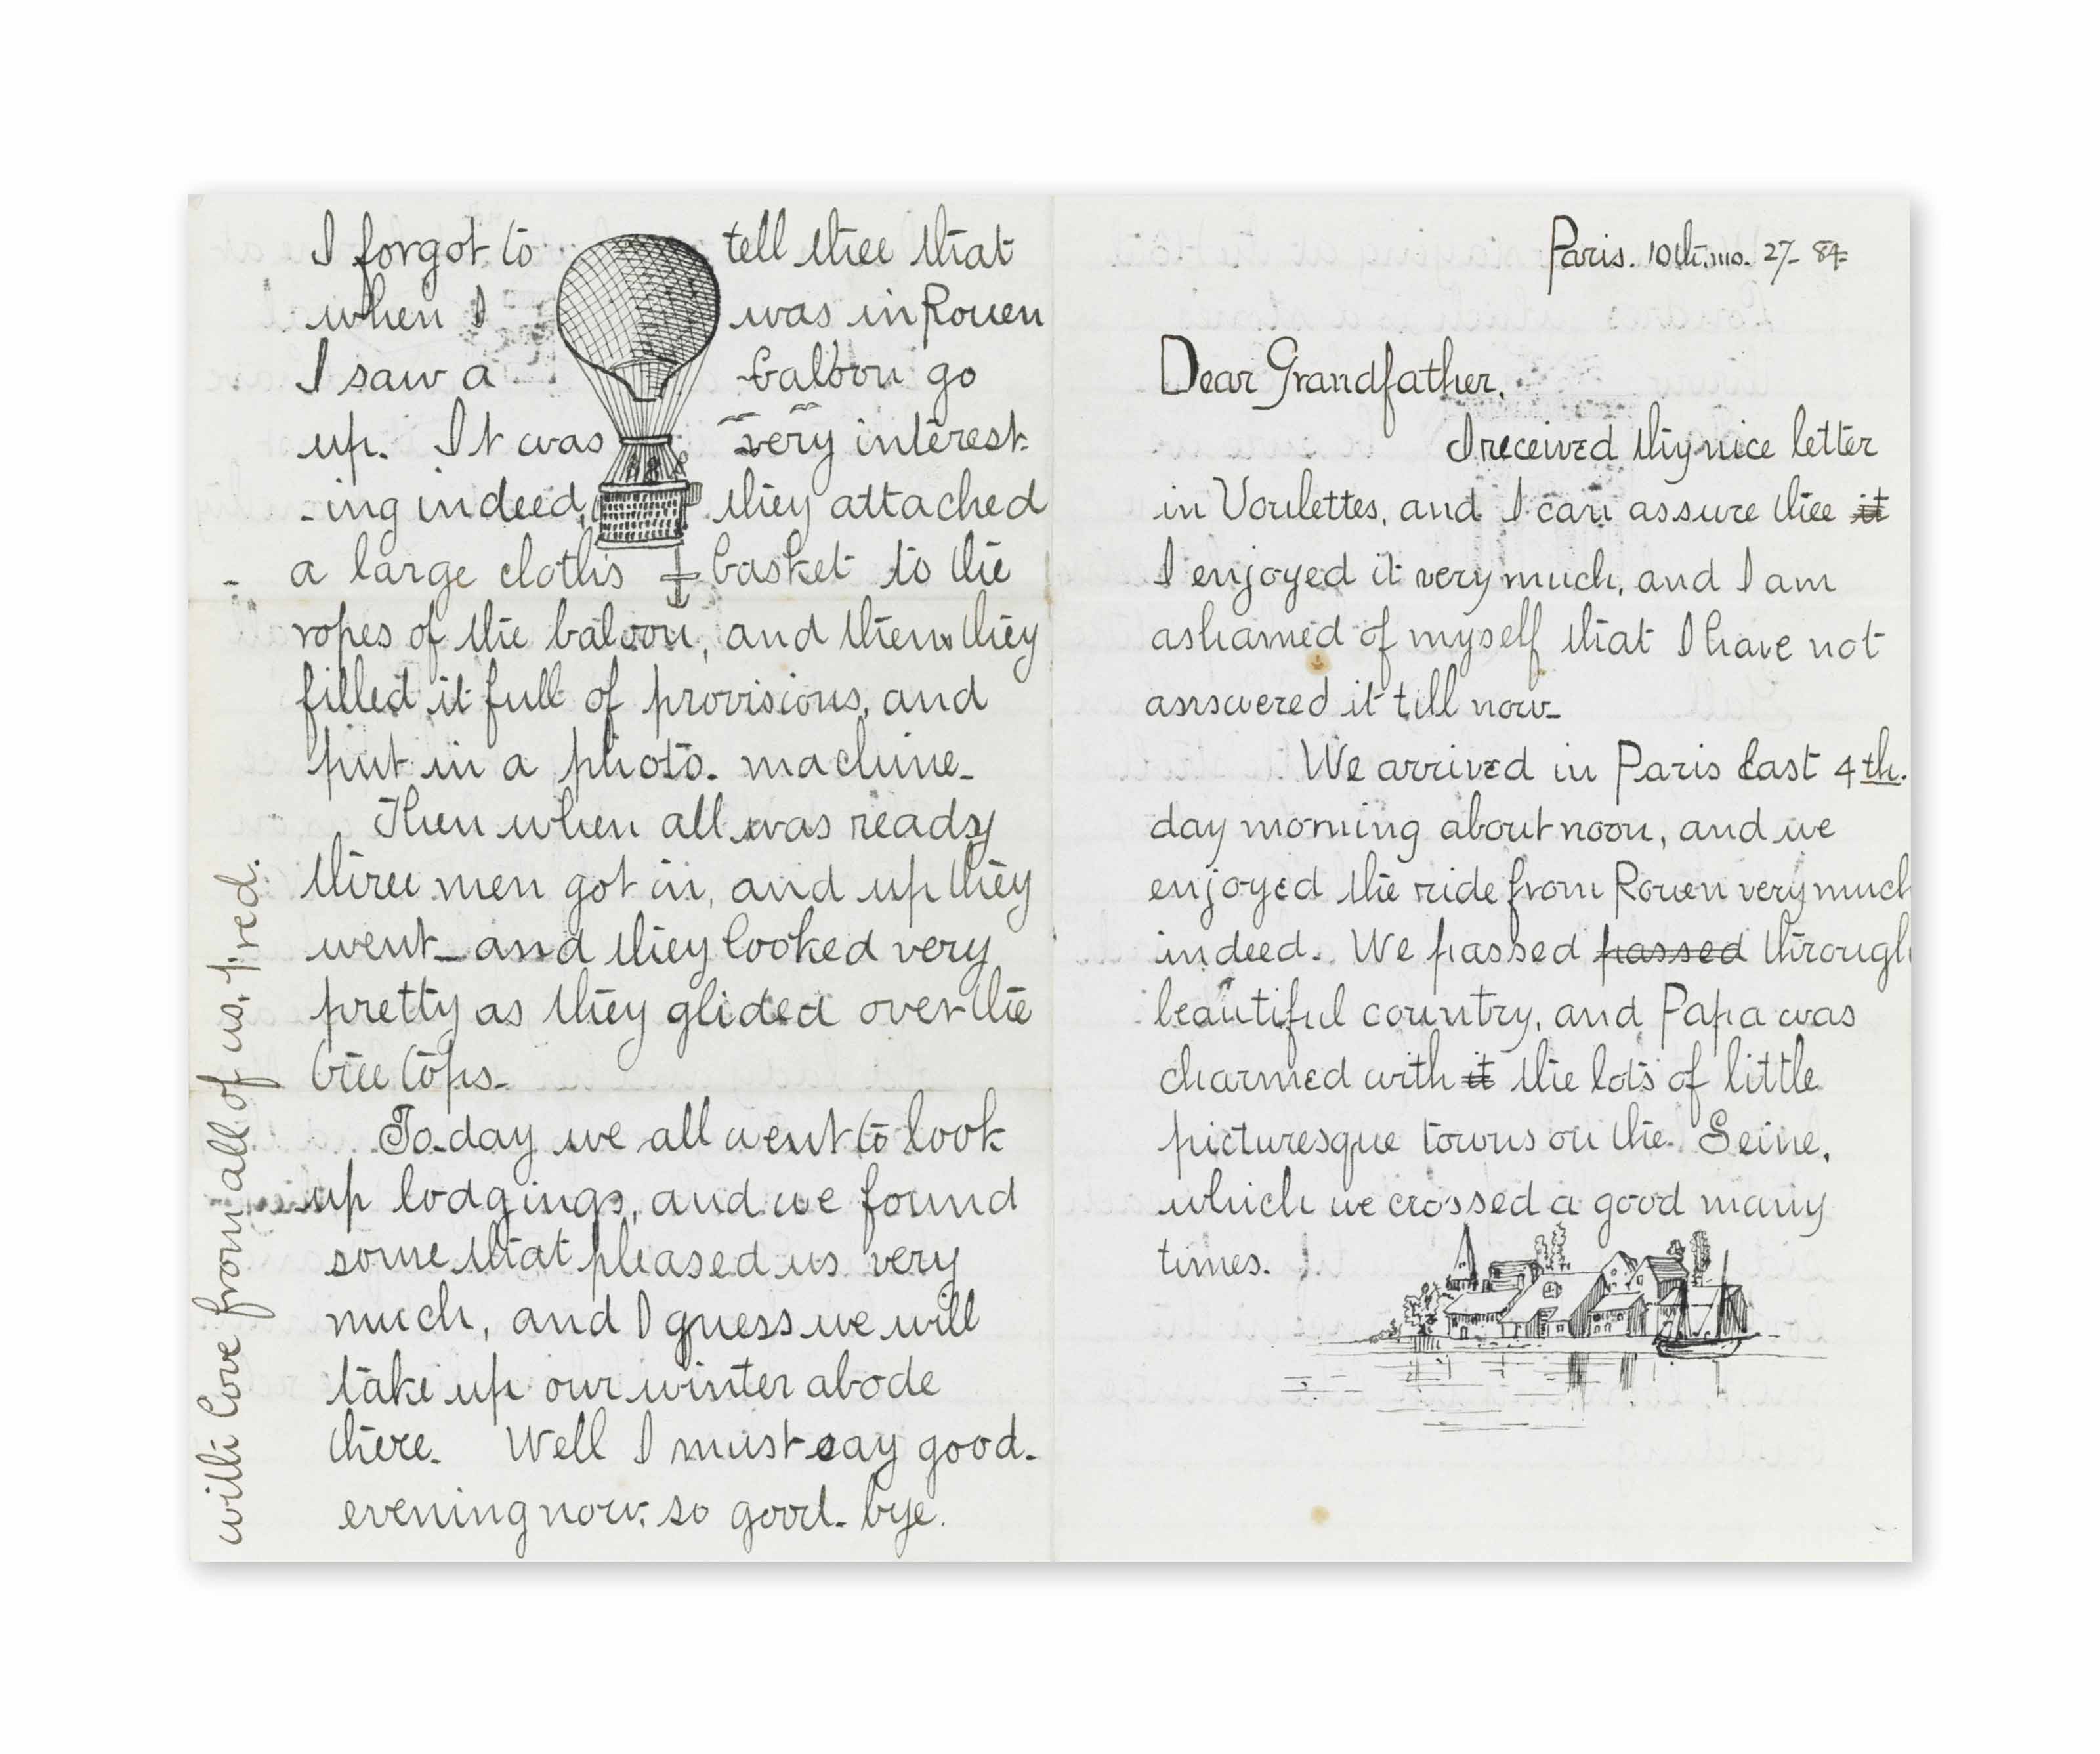 Paris. 10th. mo. 27- 84-
Dear Grandfather,
I received thy nice letter
in Voulettes, and I can assure thee it
I enjoyed it very much, and I am
ashamed of myself that I have not
answered it till now-
We arrived in Paris last 4th.
day morning about noon, and we
enjoyed the ride from Rouen very much
indeed. We passed passed through
beautiful country, and Papa was
charmed with it the lots of little
picturesque towns on the Seine,
which we crossed a good many
times.
I forgot to tell thee that
when I was in Rouen
I saw a baloon go
up. It was very interest-
-ing indeed, they attached
a large cloths basket to the
ropes of the baloon, and then they
filled it full of provisions, and
put in a photo. machine-
Then when all was ready
three men got in, and up they
went- and they looked very
pretty as they glided over the
tree tops-
To-day we all went to look
up lodgings, and we found
some that pleased us very
much, and I guess we will
take up our winter abode
there. Well I must say good-
evening now, so good-bye.
with love from all of us. Fred.